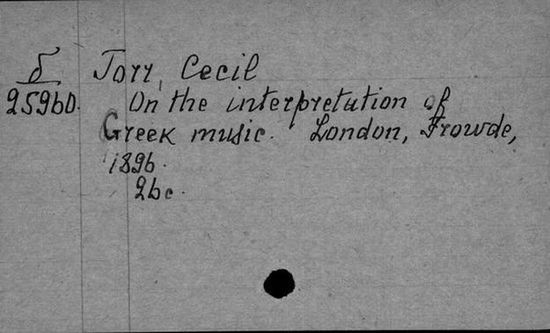 δ Torr, Cecil
25960. On the interpretation of
Greek music. London, Frowde,
1896.
26 c.